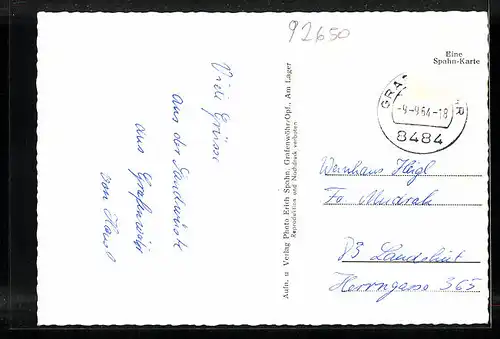 92650
Eine
Spahn-Karte
GRA
R
-9-64-18
8484
Viele Grüsse
aus der Sandwüste
aus Grafenwöhr
von Hans
Aufn. u. Verlag Photo Erich Spahn, Grafenwöhr-Opf., Am Lager
Reproduktion und Nachdruck verboten
Weinhaus
Fa.
83 Landshut
Herrngasse 365